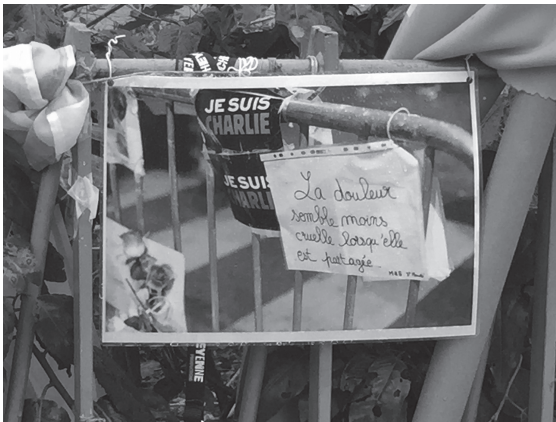 JE SUIS
CHARLIE
JE SUIS
CHARLIE
La douleur
semble moins
cruelle lorsqu'elle
est partagée.